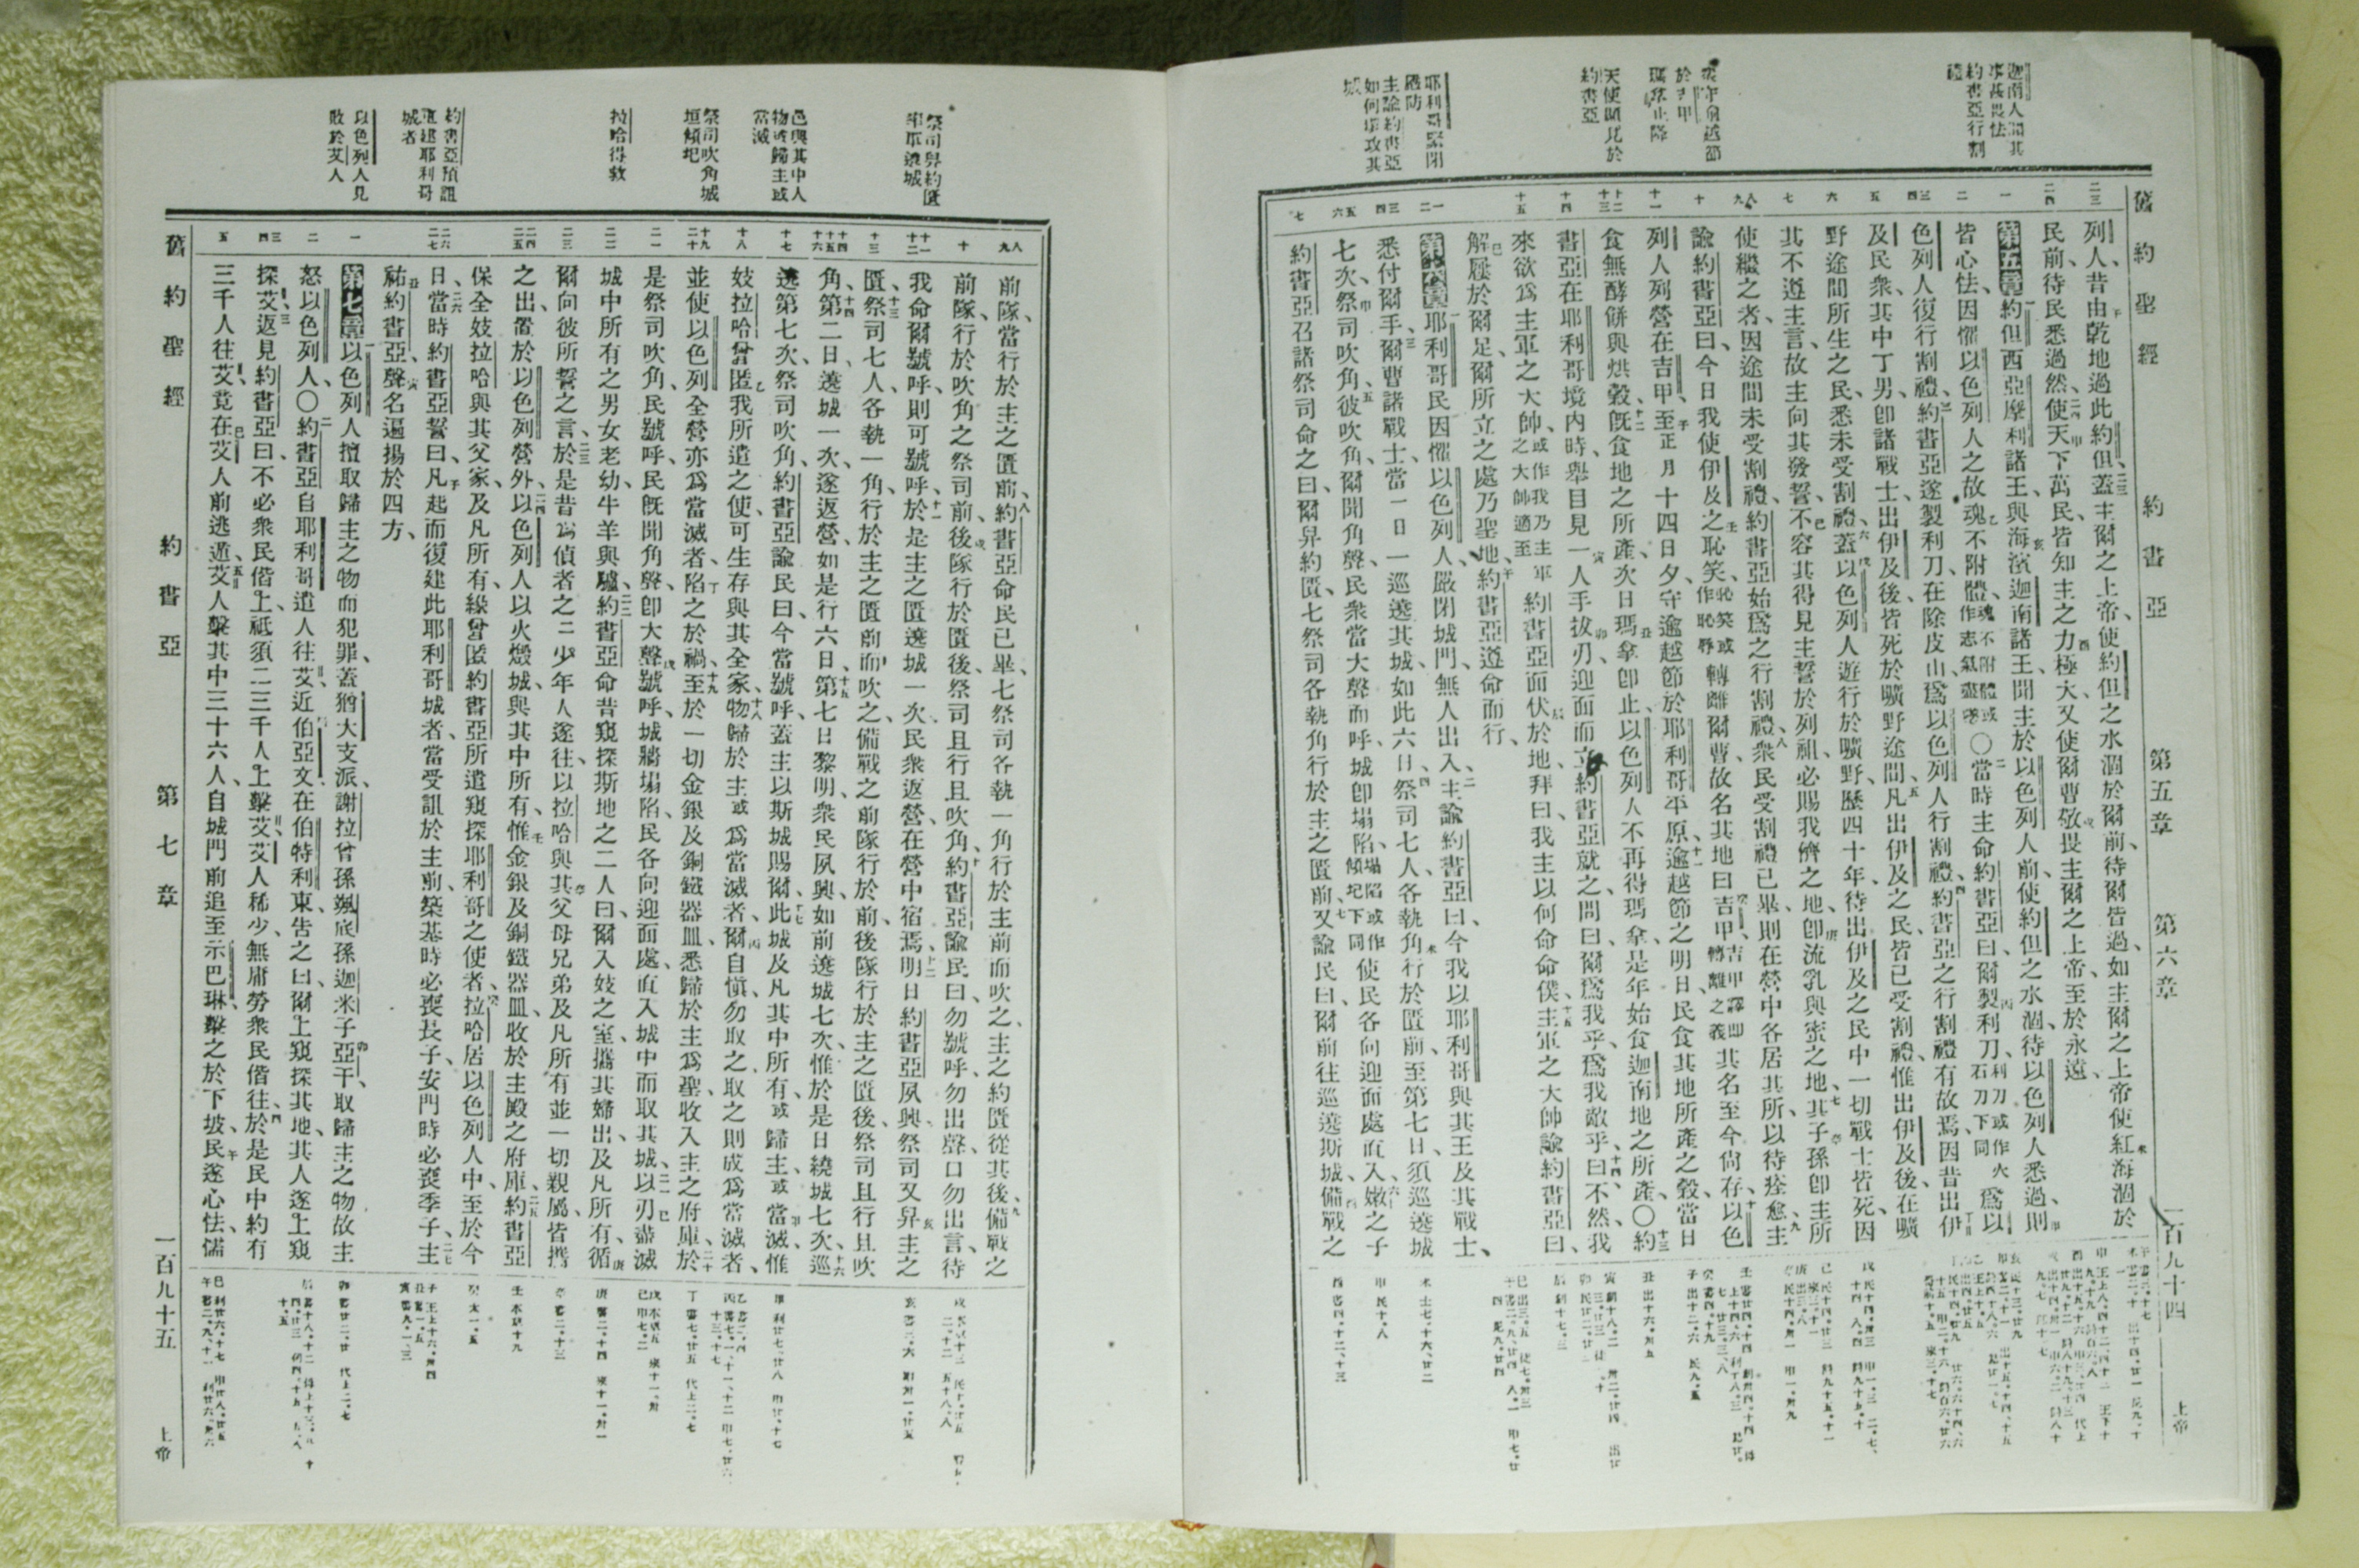 舊約聖經 約書亞 第五章 第六章 一百九十四 上帝
迦南人聞其
事甚畏怯
約書亞行割
禮
守逾越節
於吉甲
瑪拿止降
天使顯現於
約書亞
耶利哥緊閉
嚴防
主諭約書亞
如何環攻其
城
列人昔由乾地過此約但、二三蓋主爾之上帝、使約但之水涸於爾前、待爾皆過、如主爾之上帝使紅海涸於
民前、待民悉過然、二四使天下萬民、皆知主之力極大、又使爾曹敬畏主爾之上帝、至於永遠、
第五章 一約但西亞摩利諸王、與海濱迦南諸王、聞主於以色列人前、使約但之水涸、待以色列人悉過、則
皆心怯、因懼以色列人之故、魂不附體、魂不附體或作志氣盡喪〇二當時主命約書亞曰、爾製利刀、利刀或作火石刀下同為以
色列人復行割禮、三約書亞遂製利刀、在除皮山、為以色列人行割禮、四約書亞之行割禮有故焉、因昔出伊
及民眾、其中丁男、卽諸戰士、出伊及後、皆死於曠野途間、五凡出伊及之民、皆已受割禮、惟出伊及後、在曠
野途間所生之民、悉未受割禮、六蓋以色列人遊行於曠野、歷四十年、待出伊及之民中一切戰士皆死、因
其不遵主言、故主向其發誓、不容其得見主誓於列祖、必賜我儕之地、卽流乳與蜜之地、七其子孫卽主所
使繼之者、因途間未受割禮、約書亞始為之行割禮、八眾民受割禮已畢、則在營中各居其所、以待痊愈、九主
諭約書亞曰、今日我使伊及之恥笑、恥笑或作恥辱轉離爾曹、故名其地曰吉甲、吉甲譯卽轉離之義其名至今尙存、十以色
列人列營在吉甲、至正月十四日夕、守逾越節於耶利哥平原、十一逾越節之明日、民食其地所產之穀、當日
食無酵餅與烘穀、十二旣食地之所產、次日瑪拿卽止、以色列人不再得瑪拿、是年始食迦南地之所產、〇十三約
書亞在耶利哥境內時、舉目見一人手拔刃、迎面而立、約書亞就之、問曰、爾為我乎、為我敵乎、十四曰、不然、我
來欲為主軍之大帥、或作我乃主軍之大帥適至約書亞面伏於地、拜曰、我主以何命命僕、十五主軍之大帥諭約書亞曰、
解屨於爾足、爾所立之處乃聖地、約書亞遵命而行、
第六章 一耶利哥民因懼以色列人、嚴閉城門、無人出入、二主諭約書亞曰、今我以耶利哥與其王及其戰士、
悉付爾手、三爾曹諸戰士、當一日一巡遶其城、如此六日、四祭司七人、各執角行於匱前、至第七日、須巡遶城
七次、祭司吹角、五彼吹角、爾聞角聲、民眾當大聲而呼、城卽塌陷、塌陷或作傾圮下同使民各向迎面處直入、六嫩之子
約書亞召諸祭司命之曰、爾舁約匱、七祭司各執角行於主之匱前、七又諭民曰、爾前往巡遶斯城、備戰之
祭司舁約匱
率眾遶城
邑與其中人
物或歸主或
當滅
祭司吹角城
垣傾圮
拉哈得救
約書亞預詛
重建耶利哥
城者
以色列人見
敗於艾人
前隊、當行於主之匱前、八約書亞命民已畢、七祭司各執一角行於主前而吹之、主之約匱從其後、九備戰之
前隊、行於吹角之祭司前、後隊行於匱後、祭司且行且吹角、十約書亞諭民曰、勿號呼、勿出聲、口勿出言、待
我命爾號呼、則可號呼、十一於是主之匱遶城一次、民眾返營、在營中宿焉、十二明日約書亞夙興、祭司又舁主之
匱、十三祭司七人、各執一角、行於主之匱前而吹之、備戰之前隊行於前、後隊行於主之匱後、祭司且行且吹
角、十四第二日、遶城一次、遂返營、如是行六日、十五第七日黎明、眾民夙興、如前遶城七次、惟於是日繞城七次、十六巡
遶第七次、祭司吹角、約書亞諭民曰、今當號呼、蓋主以斯城賜爾、十七此城及凡其中所有、或歸主、或當滅、惟
妓拉哈曾匿我所遣之使、可生存與其全家、十八物歸於主或為當滅者、爾自愼、勿取之、取之則成為當滅者、
並使以色列全營亦為當滅者、陷之於禍、十九至於一切金銀及銅鐵器皿、悉歸於主為聖、收入主之府庫、二十於
是祭司吹角、民號呼、民旣聞角聲、卽大聲號呼、城牆塌陷、民各向迎面處、直入城中而取其城、二一以刃盡滅
城中所有之男女老幼、牛羊與驢、二二約書亞命昔窺探斯地之二人曰、爾入妓之室、攜其婦出、及凡所有、循
爾向彼所誓之言、二三於是昔為偵者之二少年人遂往、以拉哈與其父母兄弟及凡所有、並一切親屬、皆攜
之出、置於以色列營外、二四以色列人以火燬城、與其中所有、惟金銀及銅鐵器皿、收於主殿之府庫、二五約書亞
保全妓拉哈與其父家、及凡所有、緣曾匿約書亞所遣窺探耶利哥之使者、拉哈居以色列人中、至於今
日、二六當時約書亞誓曰、凡起而復建此耶利哥城者、當受詛於主前、築基時必喪長子、安門時必喪季子、二七主
祐約書亞、聲名遍揚於四方、
第七章 一以色列人擅取歸主之物而犯罪、蓋猶大支派、謝拉曾孫颯底孫迦米子亞干、取歸主之物、故主
怒以色列人、〇二約書亞自耶利哥遣人往艾、近伯亞文、在伯特利東、告之曰、爾上窺探其地、其人遂上窺
探艾、三返見約書亞曰、不必眾民偕上、祗須二三千人上擊艾、艾人稀少、無庸勞眾民偕往、四於是民中約有
三千人往艾、竟在艾人前逃遁、五艾人擊其中三十六人、自城門前追至示巴琳、擊之於下坡、民遂心怯、儒
舊約聖經 約書亞 第七章 一百九十五 上帝